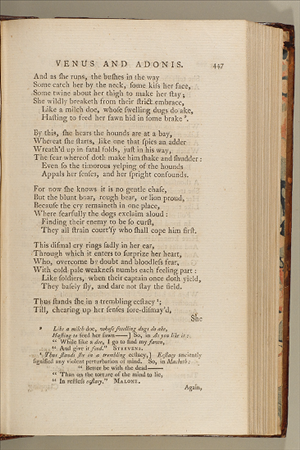 VENUS AND ADONIS. 447
And as she runs, the bushes in the way
Some catch her by the neck, some kiss her face,
Some twine about her thigh to make her stay;
She wildly breaketh from their strict embrace,
Like a milch doe, whose swelling dugs do ake,
Hasting to feed her fawn hid in some brake
By this, she hears the hounds are at a bay,
Whereat she starts, like one that spies an adder
Wreath'd up in fatal folds, just in his way,
The fear whereof doth make him shake and shudder:
Even so the timorous yelping of the hounds
Appals her senses, and her spright confounds.
For now she knows it is no gentle chase,
But the blunt boar, rough bear, or lion proud,
Because the cry remaineth in one place,
Where fearfully the dogs exclaim aloud:
Finding their enemy to be so curst,
They all strain court'sy who shall cope him first.
This dismal cry rings sadly in her ear,
Through which it enters to surprize her heart,
Who, overcome by doubt and bloodless fear,
With cold-pale weakness numbs each feeling part:
Like soldiers, when their captain once doth yield,
They basely fly, and dare not stay the field.
Thus stands she in a trembling ecstacy;
Till, chearing up her senses sore-dismay'd,
She
Like a milch doe, whose swelling dugs do ake,
Hasting to feed her fawn—] So, in As you like it:
" While like a doe, I go to find my fawn,
" And give it food." STEEVENS.
Thus stands she in a trembling ecstacy;] Ecstacy anciently
signified any violent perturbation of mind. So, in Macbeth:
" Better be with the dead—
" Than on the torture of the mind to lie,
" In restless ecstacy." MALONE.
Again,